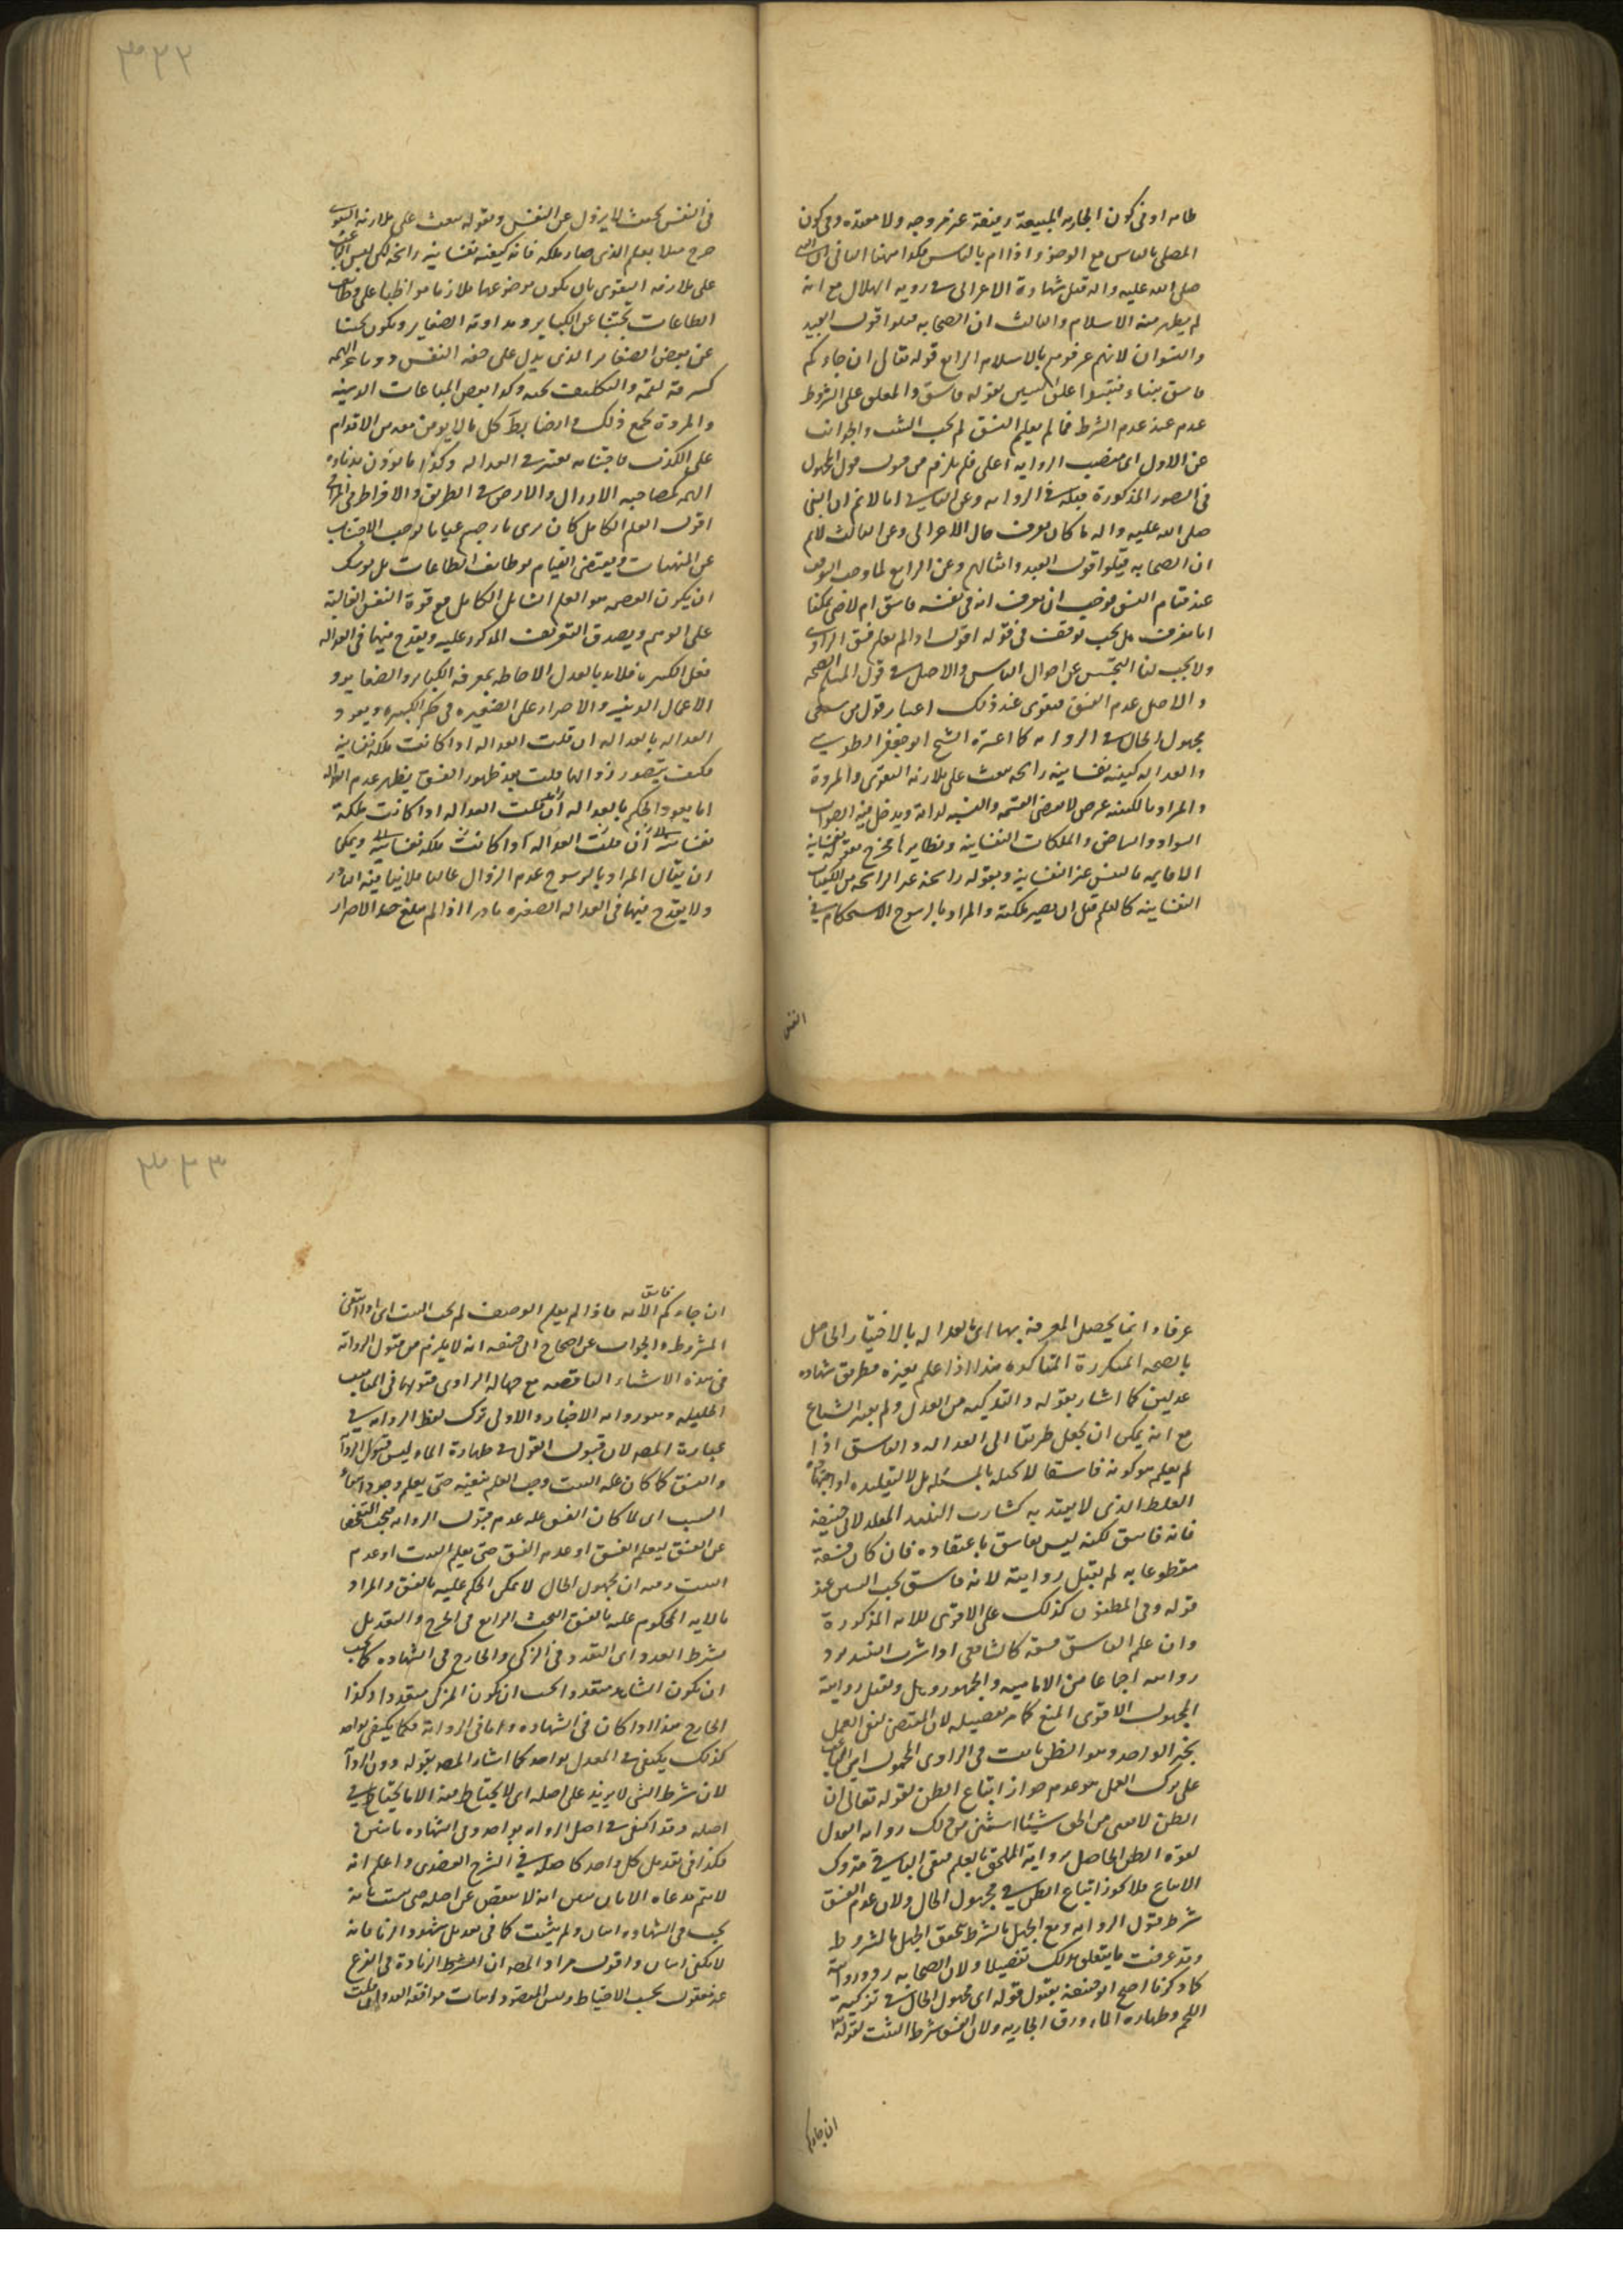 ٣٣٢
طاهرا وفى كون الجاريه المبيعة رفيعة عن مزوجه ولا معتده وفى كون
المصلى بالناس مع الوضوء اذا ام بالناس هكذا هنا الثانى ان النبى
صلى الله عليه واله قبل شهادة الاعرابى فى رويه الهلال مع انه
لم يظهر منه الاسلام والثالث ان الصحابه قبلوا قول العبيد
والنسوان لانهم عرفوهم بالاسلام الرابع قوله تعالى ان جاءكم
فاسق بنباء فتبينوا علق التبين بقوله فاسق والمعلق على الشرط
عدم عند عدم الشرط فما لم يعلم الفسق لم يجب التثبت والجواب
عن الاول ان منصب الروايه اعلى فلم يلزم من قبول قول المجهول
فى الصور المذكورة قبوله فى الروايه وعن الثانى انا لا نم ان النبى
صلى الله عليه واله ما كان يعرف حال الاعرابى وعن الثالث لا نم
ان الصحابه قبلوا قول العبيد وامثالهم وعن الرابع لما وجب التوقف
عند قيام الفسق فوجب ان يعرف انه فى نفسه فاسق ام لا حتى يمكننا
ان نعرف هل يجب توقف فى قوله اقول اذا لم يعلم فسق الراوى
ولا يجب لنا التجسس عن احوال الناس والاصل فى قول المسلم الصحه
والاصل عدم الفسق فيقوى عند ذلك اعتبار قول من
مجهول الحال فى الروايه كما اعتبره الشيخ ابو جعفر الطوسى
والعداله كيفيه نفسانيه راسخه تبعث على ملازمه التقوى والمروة
والمراد بالكيفيه عرض لا يقتضى القسمه والنسبه لذاته ويدخل فيه الاصوات
السواد والبياض والملكات النفسانيه ونظايرها فخرج بقوله نفسانيه
القايمه بالنفس عن النفسانيه وبقوله راسخه غير الراسخه من الكيفيات
النفسانيه كالعلم قبل ان يصير ملكه والمراد بالرسوخ الاستحكام فى
النفس
فى النفس بحيث لا يزول عن النفس وبقوله تبعث على ملازمه التقوى
خرج مثلا بعلم الذى صار ملكه فانه كيفيه نفسانيه راسخه لكن ليس الباعث
على ملازمه التقوى بان يكون موضوعها ملازما مواظبا على وظائف
الطاعات مجتنبا عن الكباير ومداومة الصغاير ويكون مجتنبا
عن بعض الصغاير الذى يدل على خسه النفس ودناءه الهمه
كسرقه لقمه والتطفيف بحبه وكذا بعض المباحات الدنيه
والمروة يجمع ذلك ايضا بل كل ما لا يومن معه من الاقدام
على الكذب فاجتنابه معتبر فى العداله وكذا ما يوذن بدناءه
الهمه كمصاحبه الاراذل والارض فى الطريق والافراط فى المزاح
اقول العلم الكامل كان يرى بارجحه عيانا يوجب الاجتناب
عن المنهيات ويقتضى القيام بوظايف الطاعات بل يوشك
ان يكون العصمه هو العلم الشامل الكامل مع قوة النفس الغالبه
على الوهم ويصدق التعريف المذكور عليه ويقدح فيها فى العداله
فعل الكبيره فلا بد بالعدل الاحاطه بمعرفه الكباير والصغاير و
الاعمال الدنيه والاصرار على الصغيره فى حكم الكبيره ويعود
العداله بالعداله ان قلت العداله اذا كانت ملكه نفسانيه
فكيف يتصور زوالها قلت بعد ظهور الفسق يظهر عدم العداله
انما يعود الحكم بالعداله ان قلت العداله اذا كانت ملكه
نفسانيه ان قلت العداله اذا كانت ملكه نفسانيه ويمكن
ان يقال المراد بالرسوخ عدم الزوال غالبا فلا ينافيه النادر
ولا يقدح فيها فى العداله الصغيره نادرا اذا لم يبلغ حد الاصرار
٣٣٣
عرفا وانما يحصل المعرفه بها اى بالعداله بالاختبار الحاصل
بالصحبه المتكررة المتاكده هذا اذا علم بغيره فطريق شهاده
عدلين كما اشار بقوله والتزكيه من العدل ولم يعتبر الشياع
مع انه يمكن ان يجعل طريقا الى العداله والفاسق اذا
لم يعلم هو كونه فاسقا لا لجهله بالمسئله بل لا لتقليده او اجتهاده
الغلط الذى لا يعتد به كشارب النبيذ المقلد لابى حنيفة
فانه فاسق لكنه ليس بفاسق باعتقاده فان كان فسقه
مقطوعا به لم يقبل روايته لانه فاسق يجب التبين عند
قوله وفى المظنون كذلك على الاقوى للايه المذكورة
وان علم الفاسق فسقه كالشافعى اذا شرب النبيذ يرد
روايته اجماعا من الاماميه والجمهور وهل يقبل رواية
المجهول الاقوى المنع كما مر تفصيله لان المقتضى لنفى العمل
بخبر الواحد وهو الظن ثابت فى الراوى المجهول اى الباعث
على ترك العمل هو عدم جواز اتباع الظن لقوله تعالى ان
الظن لا يغنى من الحق شيئا استثنى من ذلك روايه العدل
لقوة الظن الحاصل بروايته الملحق بالعلم فبقى الباقى متروك
الاتباع فلا يجوز اتباع الظن فى مجهول الحال ولان عدم الفسق
شرط قبول الروايه ومع الجهل بالشرط تحقق الجهل بالمشروط
وقد عرفت ما يتعلق بذلك تفصيلا ولان الصحابه ردوا روايته
كما ذكرنا احتج ابو حنيفه بقبول قوله اى مجهول الحال فى تزكيه
اللحم وطهاره الماء ورق الجاريه ولان الفسق شرط التثبت لقوله تع
ان جاءكم
ان جاءكم فاسق الايه فاذا لم يعلم الوصف لم يجب التثبت اى اذا انتفى
المشروط والجواب عن احتجاج ابى حنيفه انه لا يلزم من قبول الروايه
فى هذه الاشياء الناقصه مع جهاله الراوى قبولها فى المناصب
الجليله وهو روايه الاخبار والاولى ترك لفظ الروايه فى
عبارة المصه لان قبول القول فى طهارة الماء ليس قبول الروايه
والفسق لما كان عله التثبت وجب العلم بنفيه حتى يعلم وجود انتفاء
السبب اى لما كان الفسق عله عدم قبول الروايه فيجب التفحص
عن الفسق ليعلم الفسق او عدم الفسق حتى يعلم التثبت او عدم
التثبت وفيه ان مجهول الحال لا يمكن الحكم عليه بالفسق والمراد
بالايه المحكوم عليه بالفسق البحث الرابع فى الجرح والتعديل
شرط العدد اى التعدد فى المزكى والجارح فى الشهاده كما يجب
ان يكون الشاهد متعددا يجب ان يكون المزكى متعددا وكذا
الجارح هذا اذا كان فى الشهاده واما فى الروايه فكما يكفى بواحد
كذلك يكفى فى المعدل بواحد كما اشار المصه بقوله دون الروايه
لان شرط الشى لا يزيد على اصله اى لا يحتاط فيه الا ما يحتاط فى
اصله وقد اكتفى فى اصل الروايه بواحد وفى الشهاده باثنين
فكذا فى تعديل كل واحد كاصله فى الشرح العضدى واعلم انه
لا يتم مدعاه الا بان يبين انه لا ينقص عن اصله حتى يثبت بانه
يجب فى الشهاده اثنان ولم يثبت كما فى تعديل شهود الزنا فانه
يكفى اثنان واقول مراد المصه ان اشتراط الزيادة فى الفرع
غير معقول بحسب الاحتياط وليس المقصود اثبات موافقه العدد